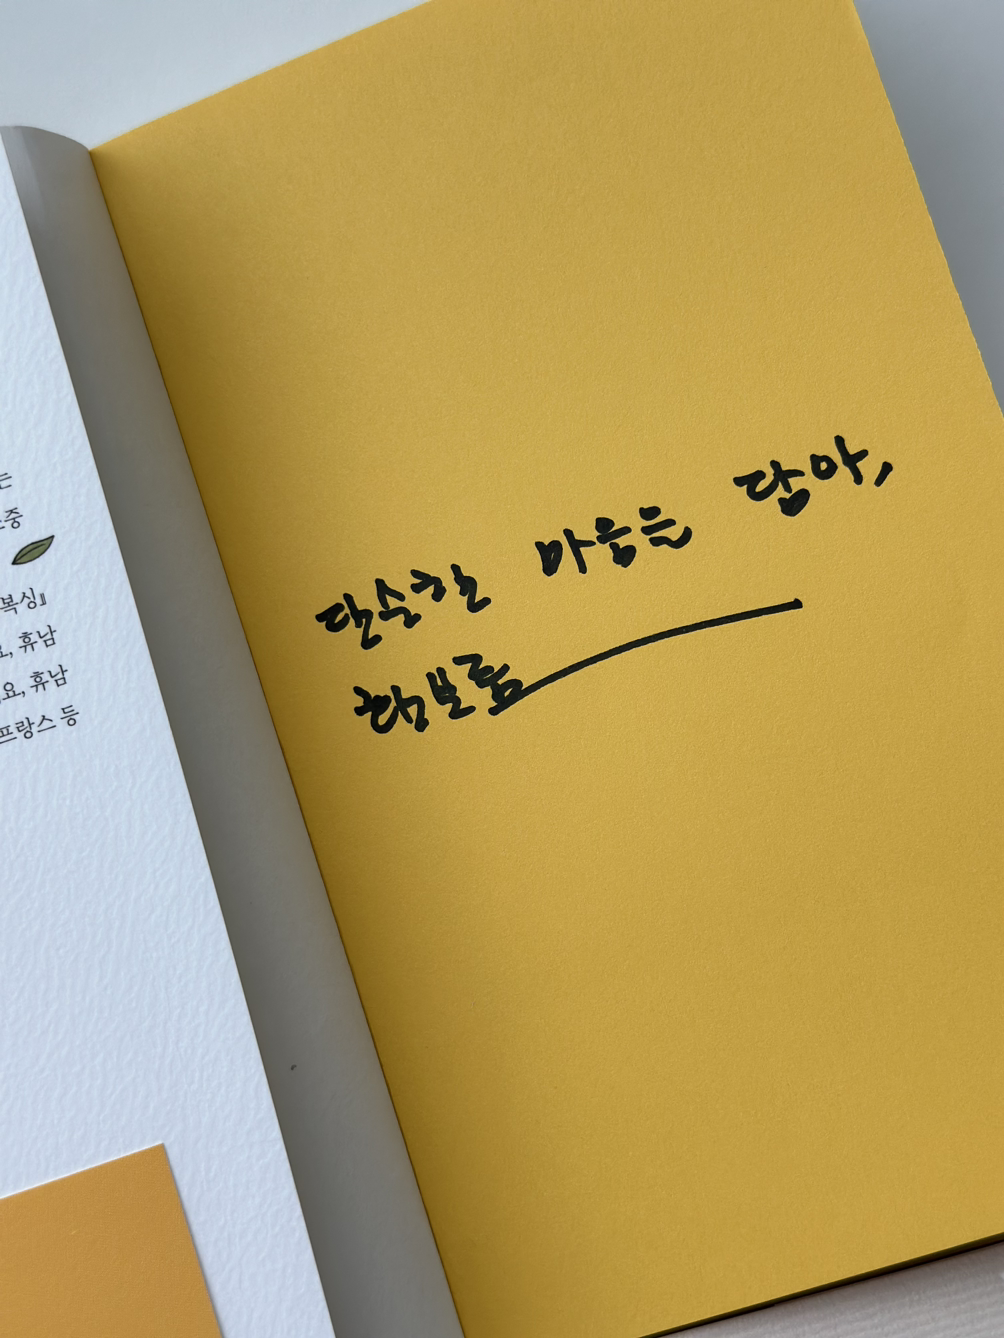 는
중
복싱』
, 휴남
요, 휴남
프랑스 등
단순한 마음을 담아,
황보름